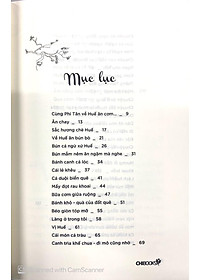 Mục lục
Cùng Phi Tân về Huế ăn cơm... _ 9
Ăn chay _ 13
Sắc hương chè Huế _ 17
Về Huế ăn bún bò _ 21
Bún cá ngừ xứ Huế _ 25
Bún mắm nêm ăn ngậm mà nghe _ 31
Bánh canh cá lóc _ 33
Cải lá khểu _ 35
Cá đuối biển quê _ 41
Mấy đọt rau khoai _ 44
Bữa cơm giữa ruộng _ 47
Bánh khô - quà của đất quê _ 51
Béo giòn tóp mỡ _ 55
Lăng ở trong tôi _ 58
Vị Huế _ 61
Cái món cá trâu _ 65
Canh trìa khế chua - đi mô cũng nhớ _ 69
CHECKING
Scanned with CamScanner